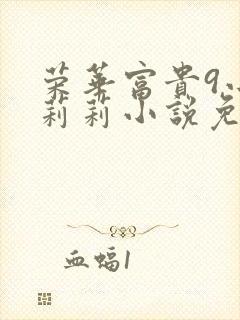 荣华富貴9
莉莉小説免
血蝠1